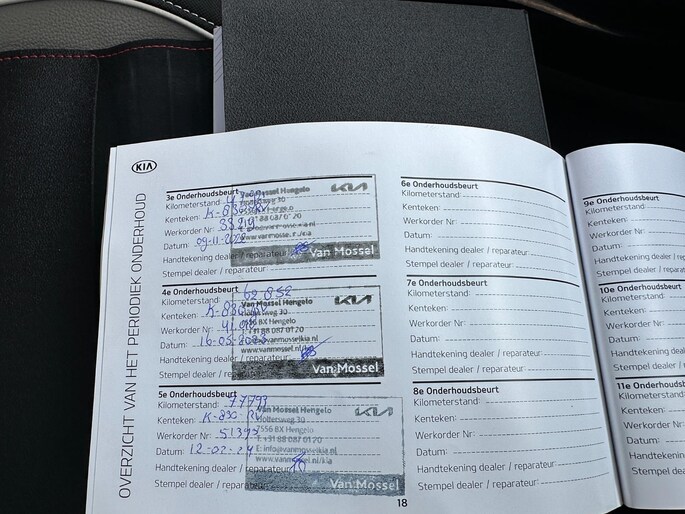 KIA
OVERZICHT VAN HET PERIODIEK ONDERHOUD
3e Onderhoudsbeurt
Kilometerstand:
Kenteken:
Werkorder Nr:
Datum: 09-11-
Handtekening dealer / reparateur:
Stempel dealer / reparateur:
Van Mossel Hengelo
KIA
Van Mossel
4e Onderhoudsbeurt
Kilometerstand: 62.852
Kenteken:
Werkorder Nr:
Datum: 16-05-2023
Handtekening dealer / reparateur:
Stempel dealer / reparateur:
Van Mossel Hengelo
KIA
7556 BX Hengelo
www.vanmosselkia.nl
Van Mossel
5e Onderhoudsbeurt
Kilometerstand: 77793
Kenteken:
Werkorder Nr: 51393
Datum: 12-02-24
Handtekening dealer / reparateur:
Stempel dealer / reparateur:
Van Mossel Hengelo
KIA
7556 BX Hengelo
T: +31 88 087 01 20
Van Mossel
6e Onderhoudsbeurt
Kilometerstand:
Kenteken:
Werkorder Nr:
Datum:
Handtekening dealer / reparateur:
Stempel dealer / reparateur:
7e Onderhoudsbeurt
Kilometerstand:
Kenteken:
Werkorder Nr:
Datum:
Handtekening dealer / reparateur:
Stempel dealer / reparateur:
8e Onderhoudsbeurt
Kilometerstand:
Kenteken:
Werkorder Nr:
Datum:
Handtekening dealer / reparateur:
Stempel dealer / reparateur:
18
9e Onderhoudsbeurt
Kilometerstand:
Kenteken:
Werkorder Nr:
Datum:
Handtekening dealer /
Stempel dealer /
10e Onderhoudsbeurt
Kilometerstand:
Kenteken:
Werkorder Nr:
Datum:
Handtekening
Stempel dealer
11e Onderhoudsb
Kilometerstand:
Kenteken:
Werkorder Nr:
Datum:
Handtekening
Stempel deal